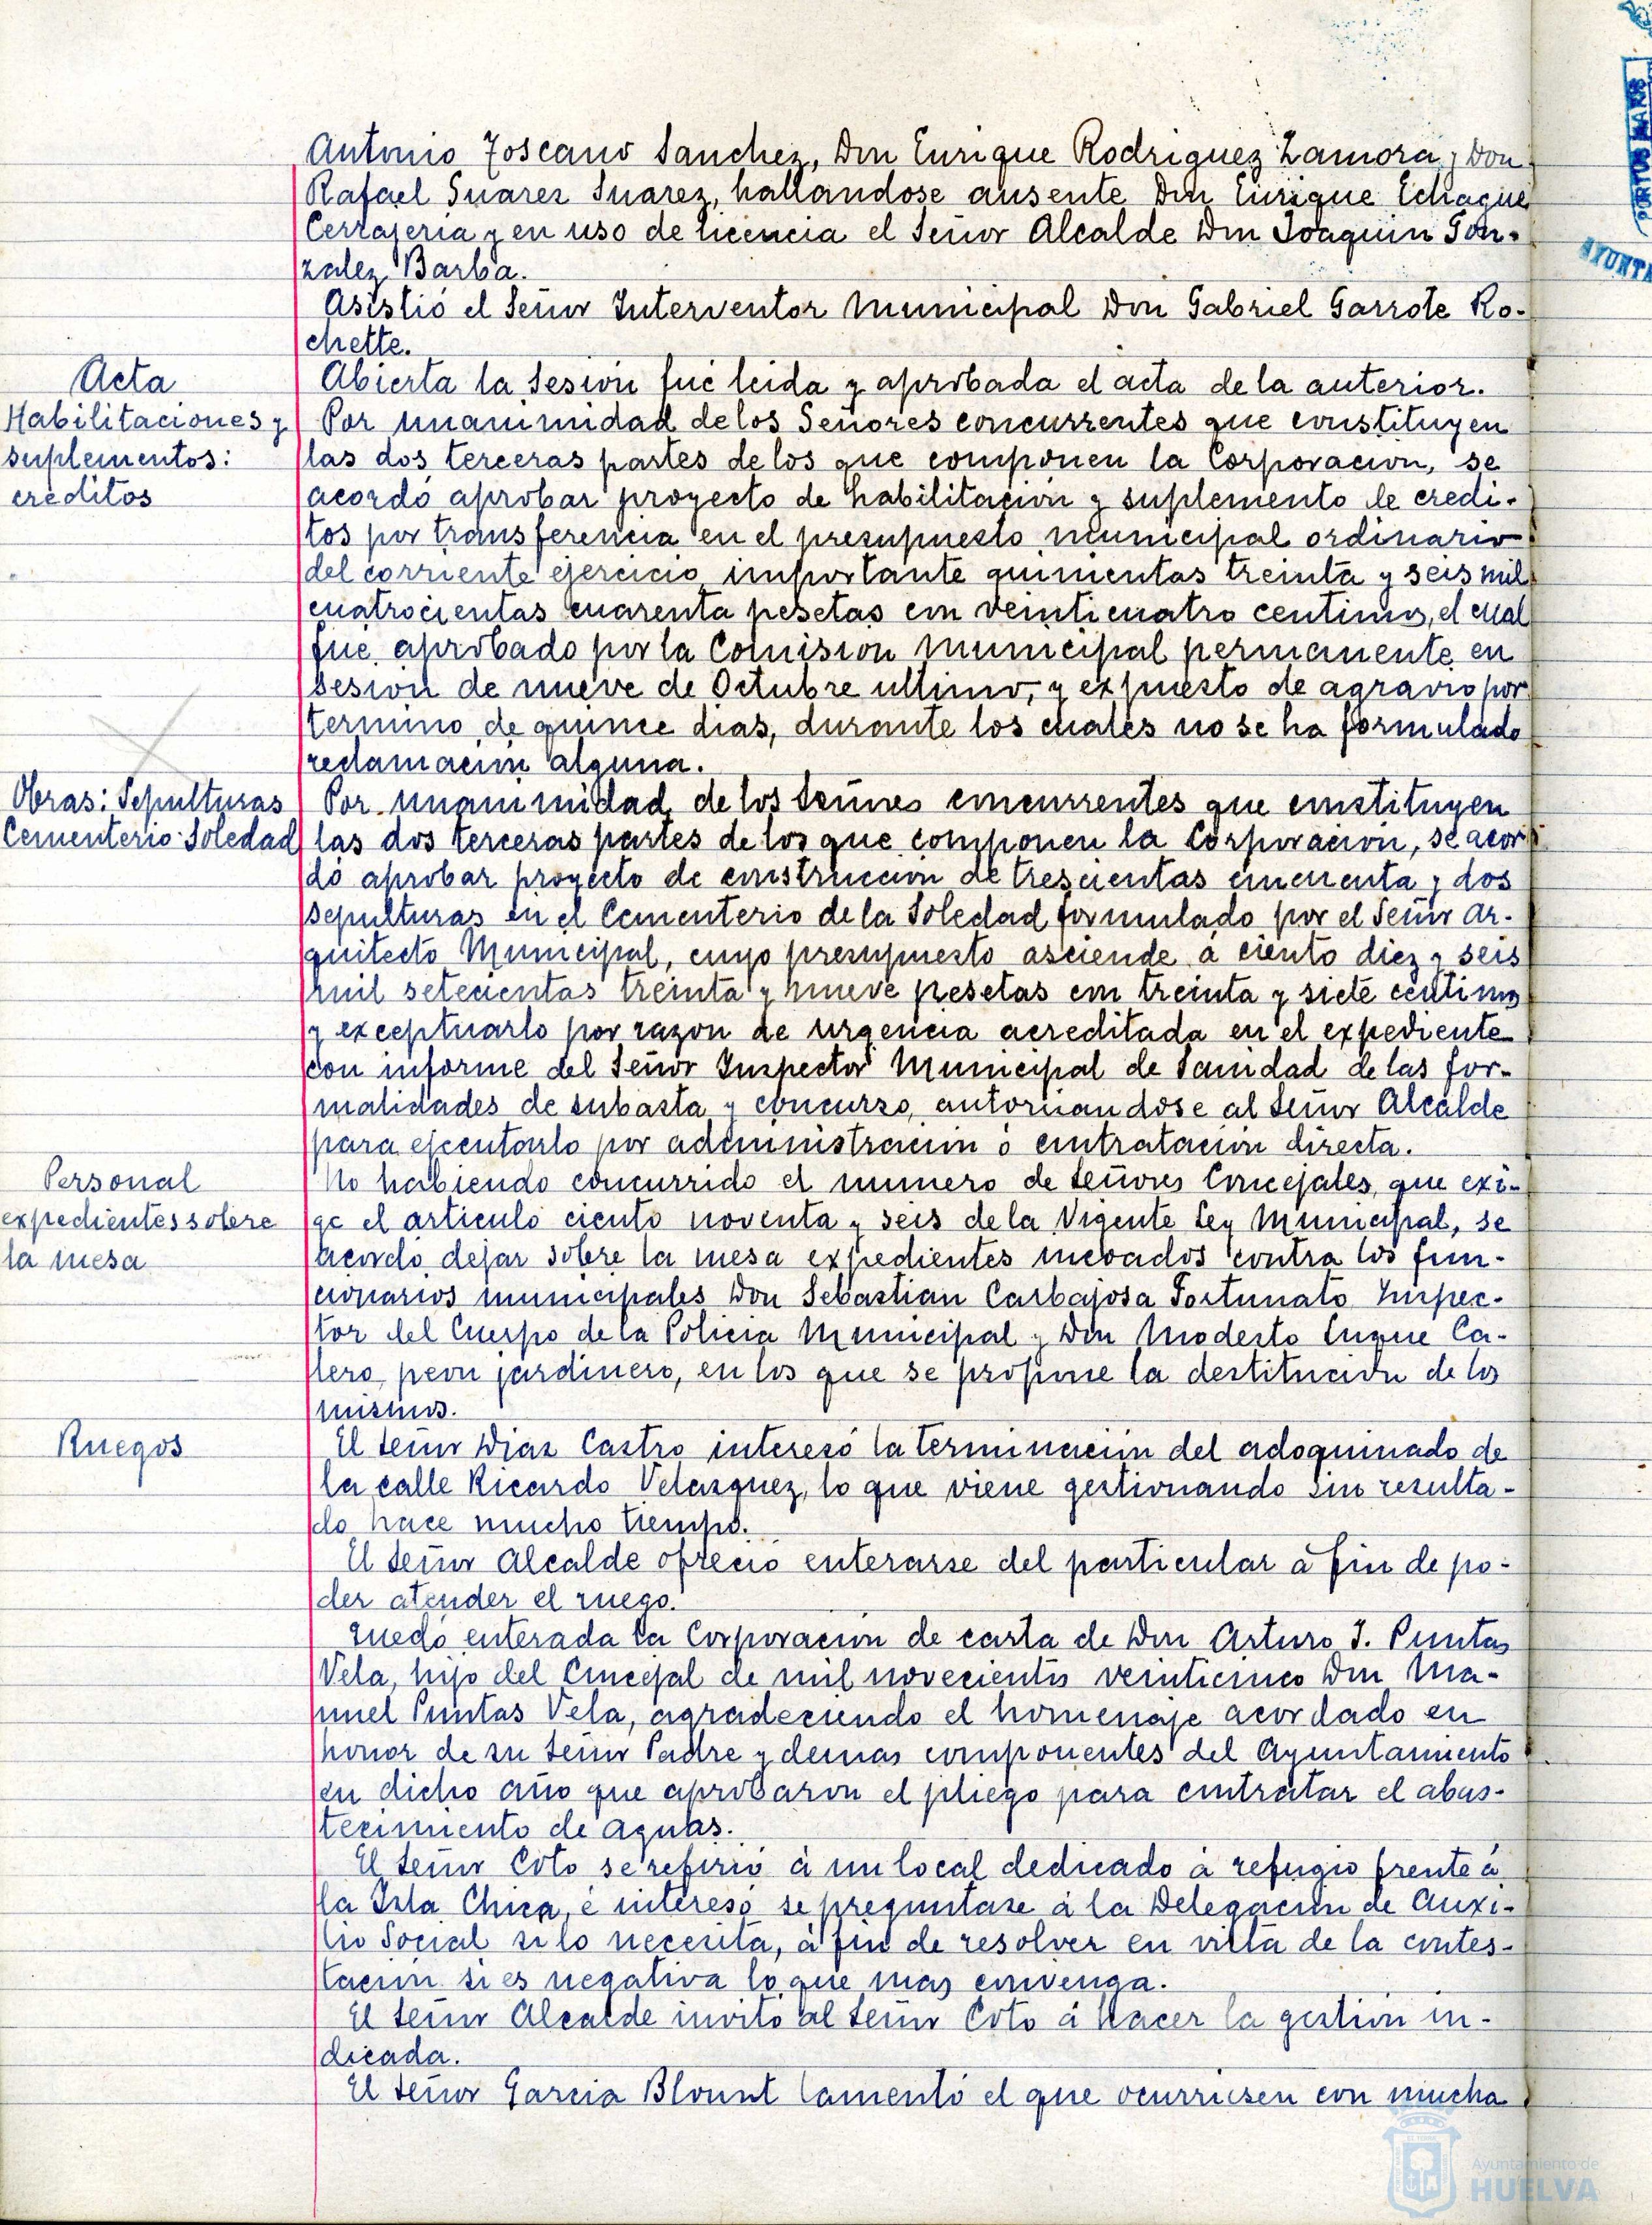 Antonio Toscano Sanchez, Don Enrique Rodriguez Zamora y Don
Rafael Suarez Suarez, hallandose ausente Don Enrique Echague
Cerrajeria y en uso de licencia el Señor Alcalde Don Joaquin Gon-
zalez Barba.
Asistió el Señor Interventor Municipal Don Gabriel Garrote Ro-
chette.
Acta
Abierta la Sesión fué leida y aprobada el acta de la anterior.
Habilitaciones y
suplementos:
creditos
Por unanimidad de los Señores concurrentes que constituyen
las dos terceras partes de los que componen la Corporación, se
acordó aprobar proyecto de habilitación y suplemento de credi-
tos por transferencia en el presupuesto municipal ordinario
del corriente ejercicio importante quinientas treinta y seis mil
cuatrocientas cuarenta pesetas con veinticuatro centimos, el cual
fué aprobado por la Comisión Municipal permanente en
sesión de nueve de Octubre ultimo, y expuesto de agravio por
termino de quince dias, durante los cuales no se ha formulado
reclamación alguna.
Obras: Sepulturas
Cementerio Soledad
Por unanimidad de los Señores concurrentes que constituyen
las dos terceras partes de los que componen la Corporación, se acor
dó aprobar proyecto de construcción de trescientas cincuenta y dos
sepulturas en el Cementerio de la Soledad formulado por el Señor Ar-
quitecto Municipal, cuyo presupuesto asciende á ciento diez y seis
mil setecientas treinta y nueve pesetas con treinta y siete centimos
y exceptuarlo por razon de urgencia acreditada en el expediente
con informe del Señor Inspector Municipal de Sanidad de las for-
malidades de subasta y concurso, autorizandose al Señor Alcalde
para ejecutarlo por administración ó contratación directa.
Personal
expedientes sobre
la mesa
No habiendo concurrido el numero de Señores Concejales, que exi-
ge el articulo ciento noventa y seis de la Vigente Ley Municipal, se
acordó dejar sobre la mesa expedientes incoados contra los fun-
cionarios municipales Don Sebastian Carbajosa Fortunato Inspec-
tor del Cuerpo de la Policia Municipal y Don Modesto Luque Ca-
lero peon jardinero, en los que se propone la destitución de los
mismos.
Ruegos
El Señor Diaz Castro interesó la terminación del adoquinado de
la calle Ricardo Velazquez, lo que viene gestionando sin resulta-
do hace mucho tiempo.
El Señor Alcalde ofreció enterarse del particular á fin de po-
der atender el ruego.
Quedó enterada la Corporación de carta de Don Arturo J. Puntas
Vela, hijo del Concejal de mil novecientos veinticinco Don Ma-
nuel Puntas Vela, agradeciendo el homenaje acordado en
honor de su Señor Padre y demas componentes del Ayuntamiento
en dicho año que aprobaron el pliego para contratar el abas-
tecimiento de aguas.
El Señor Coto se refirió á un local dedicado á refugio frente á
la Isla Chica, é interesó se preguntase á la Delegación de Auxi-
lio Social si lo necesita, á fin de resolver en vista de la contes-
tación si es negativa lo que mas convenga.
El Señor Alcalde invitó al Señor Coto á hacer la gestión in-
dicada.
El Señor Garcia Blount lamentó el que ocurriesen con mucha
PORTUS MARIS
AYUNTA
Ayuntamiento de
HUELVA